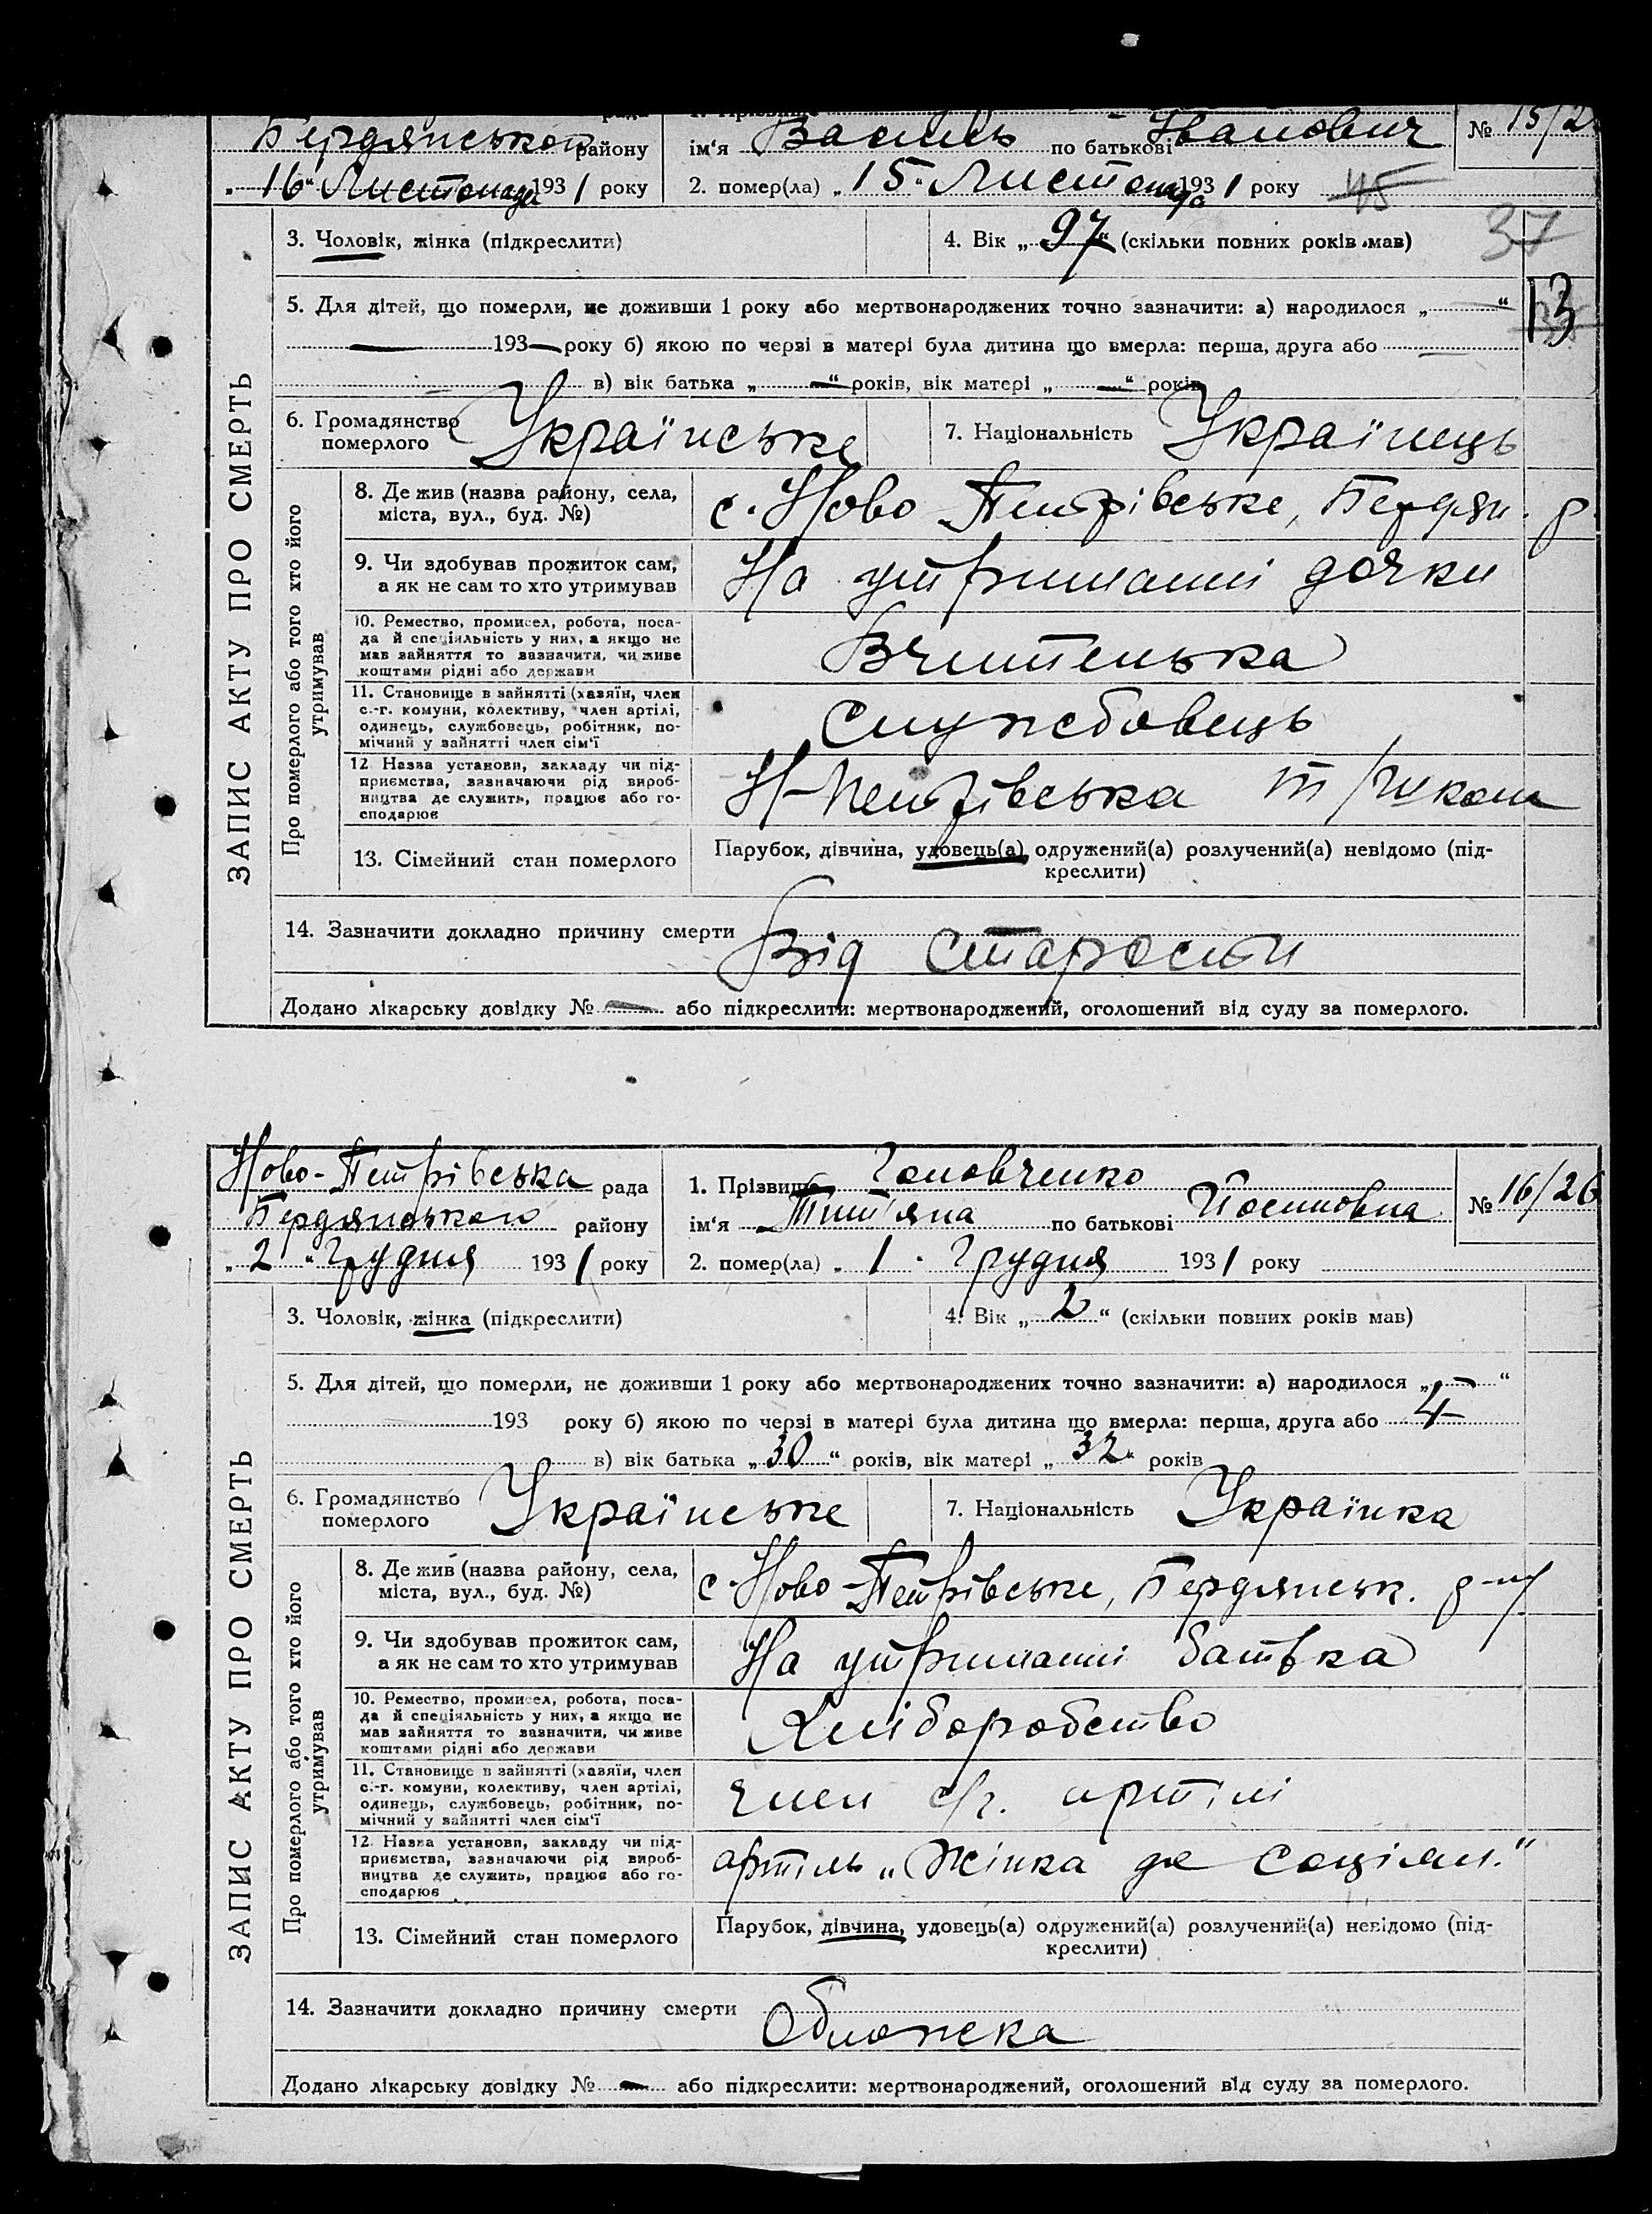 Бердянського району ім'я Василь по батькові Іванович № 15/2
„16" Листопада 1931 року 2. помер(ла) „15" Листопада 1931 року 45
3. Чоловік, жінка (підкреслити) 4. Вік „97" (скільки повних років мав) 37
5. Для дітей, що померли, не доживши 1 року або мертвонароджених точно зазначити: а) народилося „—" 13
— 193— року б) якою по черзі в матері була дитина що вмерла: перша, друга або —
в) вік батька „—" років, вік матері „—" років
6. Громадянство померлого Українське 7. Національність Українець
ЗАПИС АКТУ ПРО СМЕРТЬ
Про померлого або того хто його утримував
8. Де жив (назва району, села, міста, вул., буд. №) с. Ново Петрівське, Бердян. р.
9. Чи здобував прожиток сам, а як не сам то хто утримував На утриманні дочки
10. Ремество, промисел, робота, посада й спеціяльність у них, а якщо не мав зайняття то зазначити, чи живе коштами рідні або держави Вчителька
11. Становище в зайнятті (хазяїн, член с.-г. комуни, колективу, член артілі, одинець, службовець, робітник, помічний у зайнятті член сім'ї службовець
12. Назва установи, закладу чи підприємства, зазначаючи рід виробництва де служить, працює або господарює Н-Петрівська т/школа
13. Сімейний стан померлого Парубок, дівчина, удовець(а) одружений(а) розлучений(а) невідомо (підкреслити)
14. Зазначити докладно причину смерти Від старости
Додано лікарську довідку № — або підкреслити: мертвонароджений, оголошений від суду за померлого.
Ново-Петрівська рада 1. Прізвище Головченко
Бердянського району ім'я Тит'яна по батькові Йосиповна № 16/26
„2" Грудня 1931 року 2. помер(ла) „1" Грудня 1931 року
3. Чоловік, жінка (підкреслити) 4. Вік „2" (скільки повних років мав)
5. Для дітей, що померли, не доживши 1 року або мертвонароджених точно зазначити: а) народилося „—"
193 року б) якою по черзі в матері була дитина що вмерла: перша, друга або 4
в) вік батька „30" років, вік матері „32" років
6. Громадянство померлого Українське 7. Національність Українка
ЗАПИС АКТУ ПРО СМЕРТЬ
Про померлого або того хто його утримував
8. Де жив (назва району, села, міста, вул., буд. №) с. Ново-Петрівське, Бердянськ. р-ну
9. Чи здобував прожиток сам, а як не сам то хто утримував На утриманні батька
10. Ремество, промисел, робота, посада й спеціяльність у них, а якщо не мав зайняття то зазначити, чи живе коштами рідні або держави Хліборобство
11. Становище в зайнятті (хазяїн, член с.-г. комуни, колективу, член артілі, одинець, службовець, робітник, помічний у зайнятті член сім'ї член с/г. артілі
12. Назва установи, закладу чи підприємства, зазначаючи рід виробництва де служить, працює або господарює артіль „Жінка до соціял."
13. Сімейний стан померлого Парубок, дівчина, удовець(а) одружений(а) розлучений(а) невідомо (підкреслити)
14. Зазначити докладно причину смерти Обложека
Додано лікарську довідку № — або підкреслити: мертвонароджений, оголошений від суду за померлого.